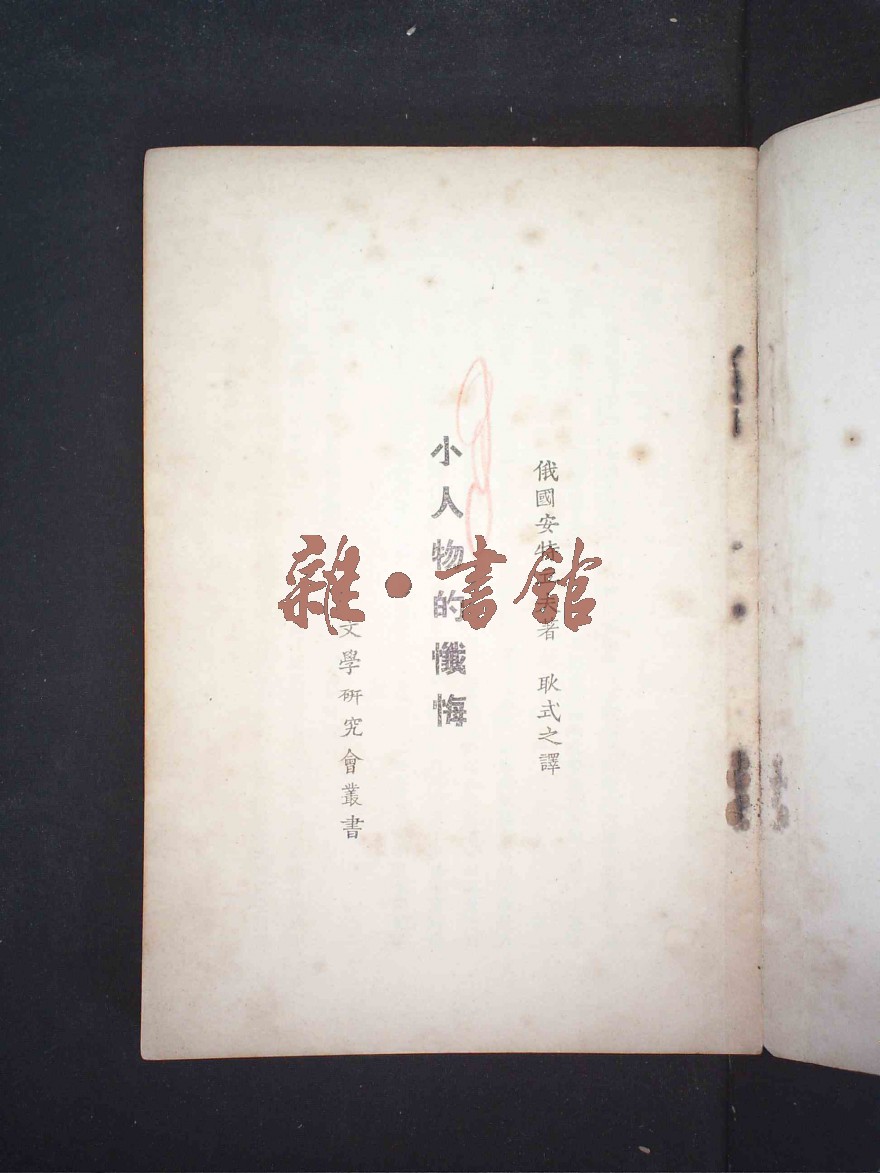 俄國安特列夫著 耿式之譯
小人物的懺悔
文學研究會叢書
雜·書館